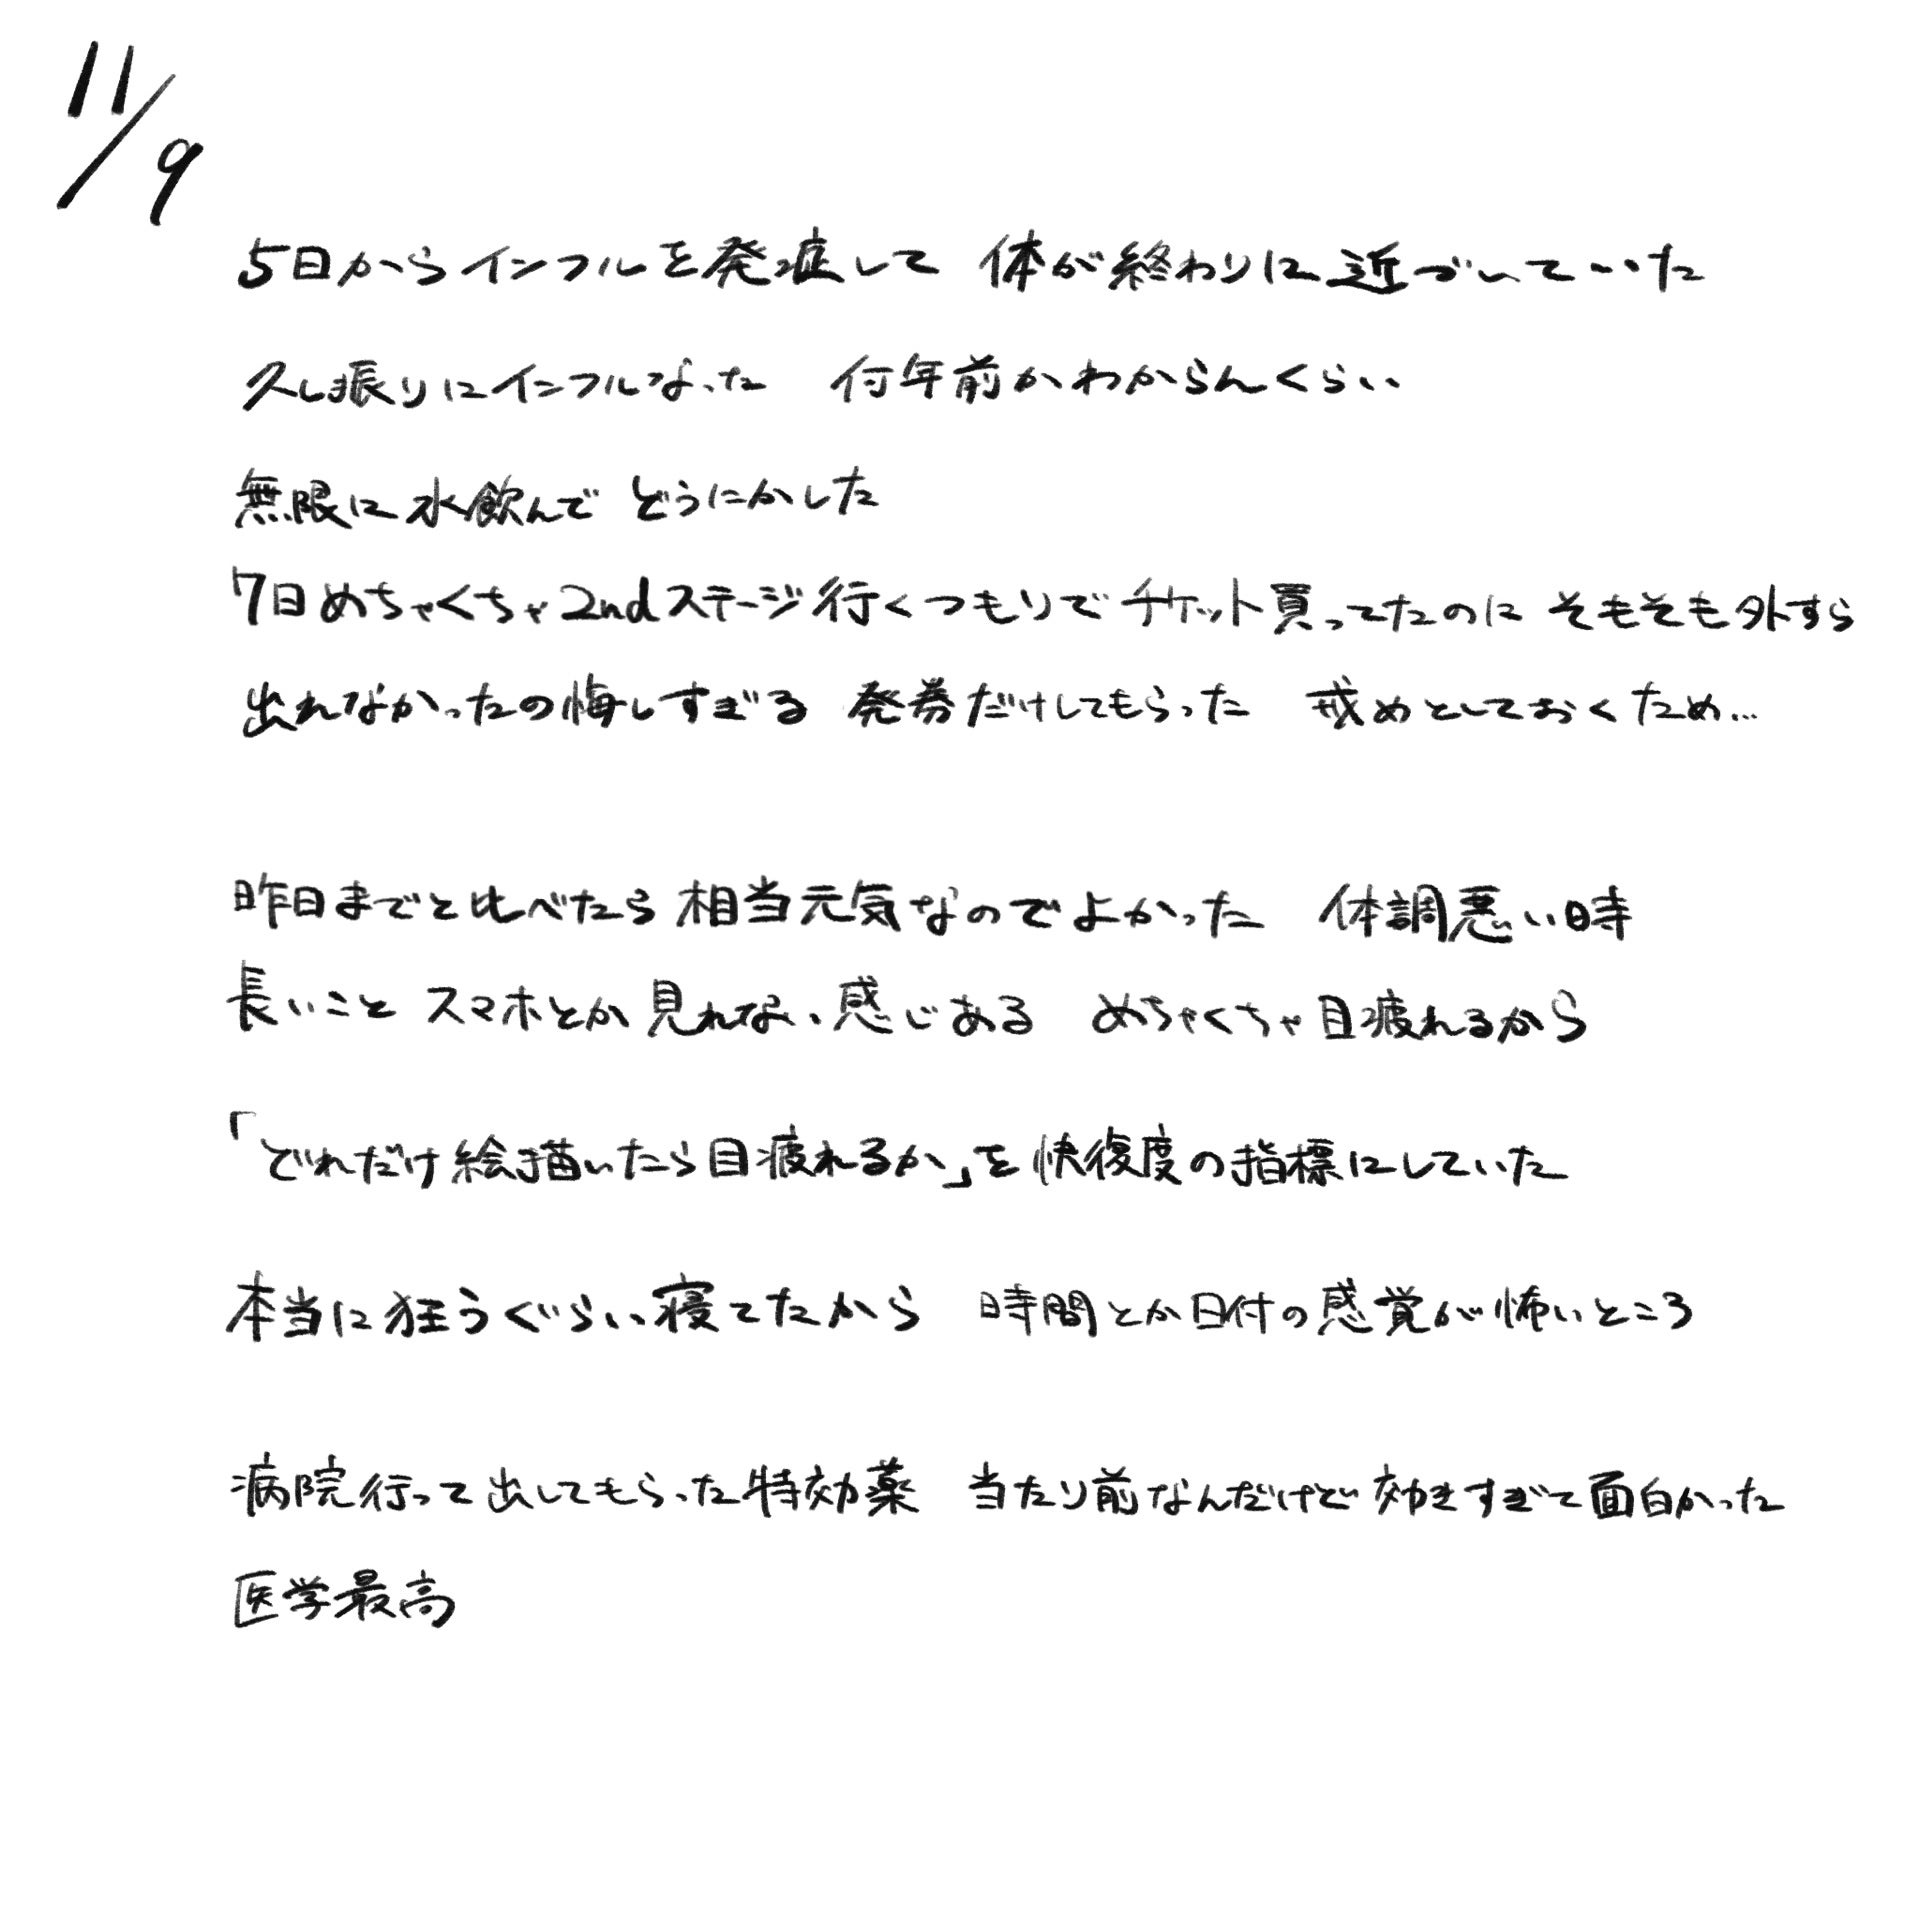 11/9
5日からインフルを発症して 体が終わりに近づいていた
久し振りにインフルなった 何年前かわからんくらい
無限に水飲んで どうにかした
7日めちゃくちゃ2ndステージ行くつもりでチケット買ってたのに そもそも外すら
出れなかったの悔しすぎる 発券だけしてもらった 戒めとしておくため…
昨日までと比べたら相当元気なのでよかった 体調悪い時
長いこと スマホとか見れない感じある めちゃくちゃ目疲れるから
「どれだけ絵描いたら目疲れるか」を快復度の指標にしていた
本当に狂うぐらい寝てたから 時間とか日付の感覚が怖いところ
病院行って出してもらった特効薬 当たり前なんだけど効きすぎて面白かった
医学最高